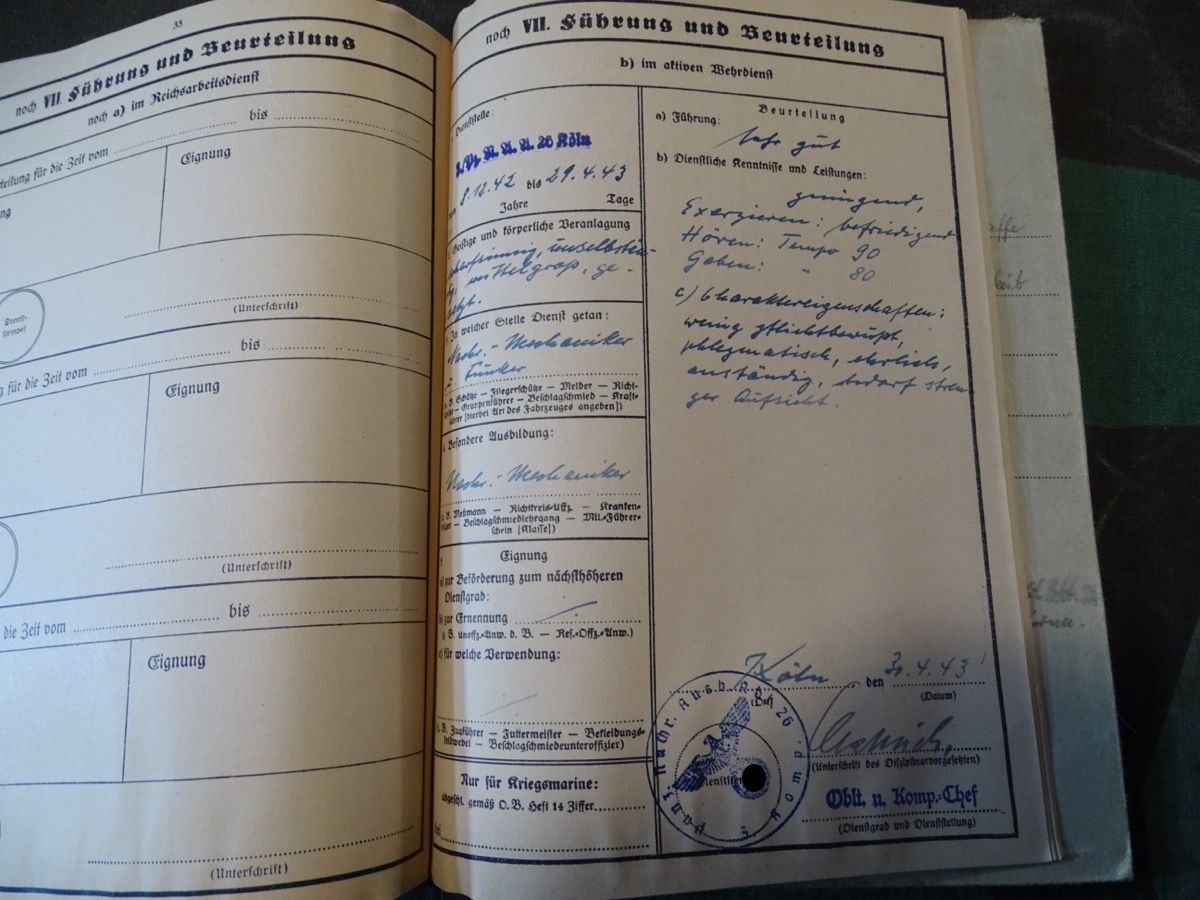 35
noch VII. Führung und Beurteilung
noch a) im Reichsarbeitsdienst
teilung für die Zeit vom bis
ng
Eignung
Dienst-
stempel
(Unterschrift)
g für die Zeit vom bis
Eignung
(Unterschrift)
die Zeit vom bis
Eignung
(Unterschrift)
noch VII. Führung und Beurteilung
b) im aktiven Wehrdienst
Dienststelle:
N. A. A. 26 Köln
8.12.42 bis 29.4.43
Jahre Tage
Geistige und körperliche Veranlagung
unselbstän-
mittelgroß, ge-
setzt.
In welcher Stelle Dienst getan:
Nachr.-Mechaniker
u. Funker
B. Schütze – Fliegerschütze – Melder – Richt-
– Gruppenführer – Beschlagschmied – Kraft-
fahrer [hierbei Art des Fahrzeuges angeben])
Besondere Ausbildung:
Nachr.-Mechaniker
B. Meßmann – Richtkreis-Uffz. – Kranken-
– Beschlagschmiedlehrgang – Mil.-Führer-
schein [Klasse])
Eignung
a) zur Beförderung zum nächsthöheren
Dienstgrad:
b) zur Ernennung
B. Unoffz.-Anw. d. B. – Res.-Offz.-Anw.)
c) für welche Verwendung:
B. Zugführer – Futtermeister – Bekleidungs-
feldwebel – Beschlagschmiedeunteroffizier)
Nur für Kriegsmarine:
abgeschl. gemäß O. B. Heft 14 Ziffer
Beurteilung
a) Führung:
sehr gut
b) Dienstliche Kenntnisse und Leistungen:
genügend,
Exerzieren: befriedigend
Hören: Tempo 90
Geben: " 80
c) Charaktereigenschaften:
wenig pflichtbewußt,
phlegmatisch, ehrlich,
anständig, bedarf stren-
ger Aufsicht.
Köln, den 30.4.43
(Ort) (Datum)
Panz. Nachr. Ausb. Abt. 26
(Unterschrift des Disziplinarvorgesetzten)
Oblt. u. Komp.-Chef
(Dienstgrad und Dienststellung)